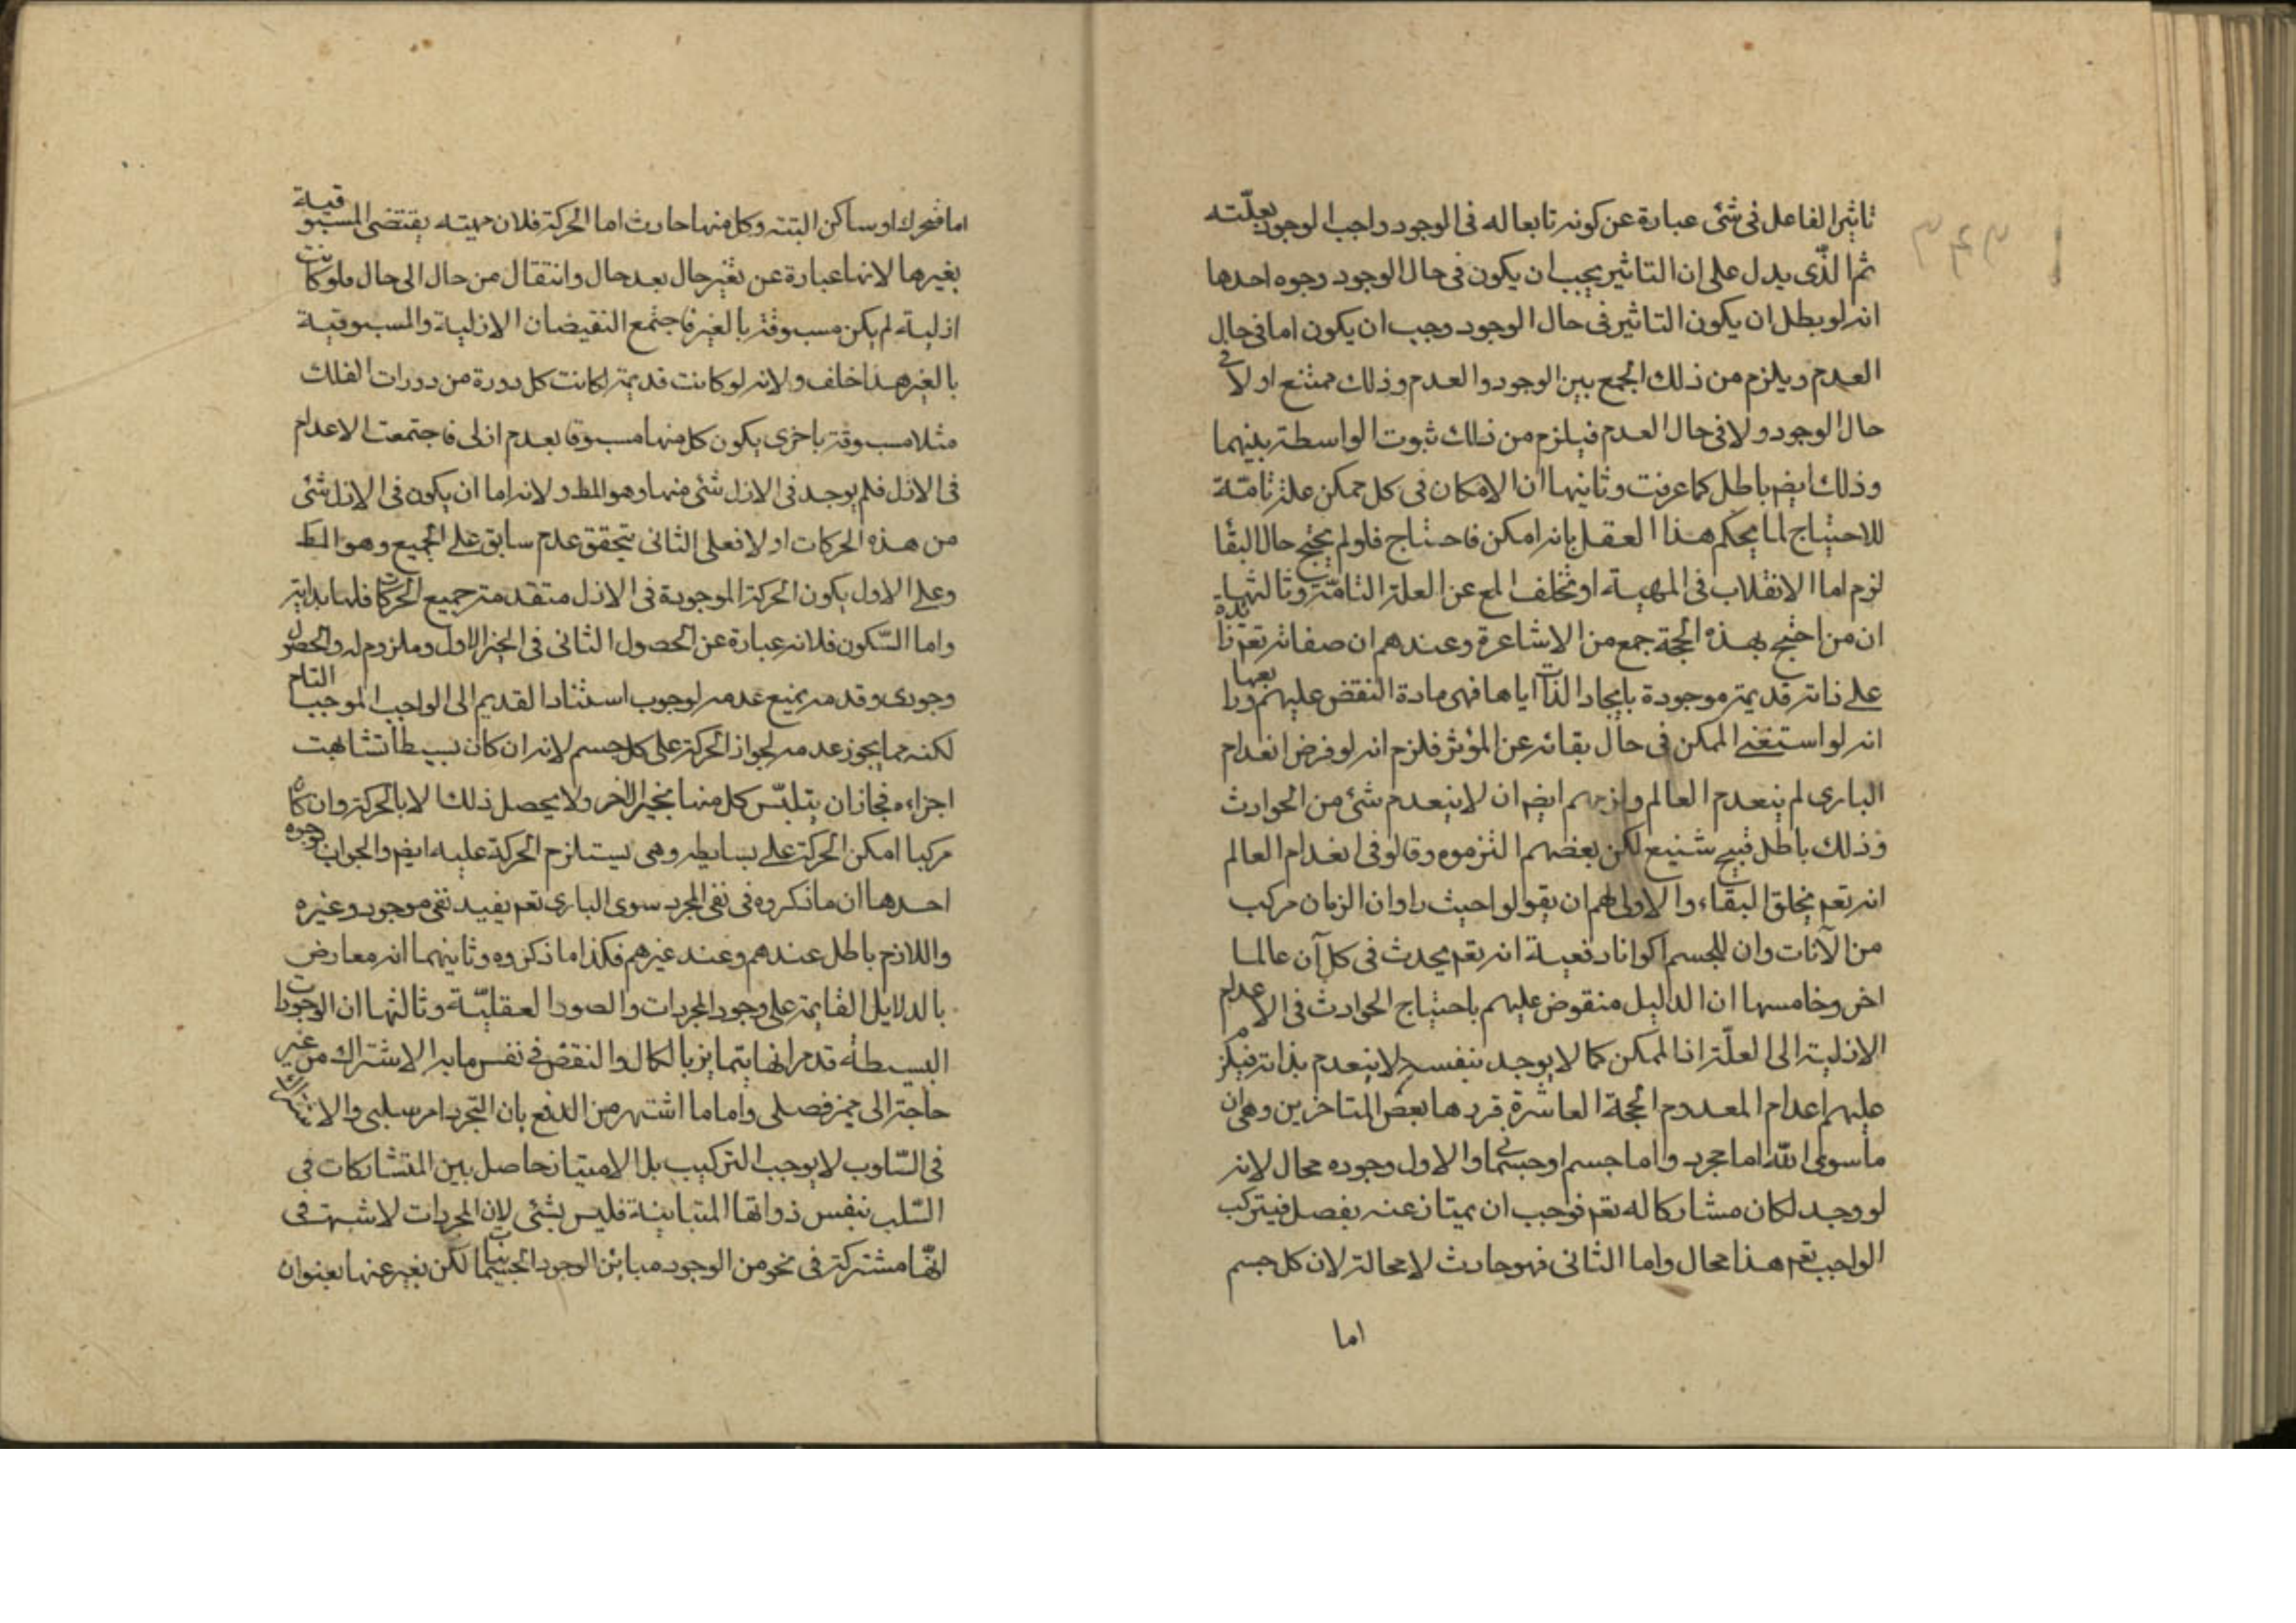 تاثير الفاعل فى شئ عبارة عن كونه تابعا له فى الوجود واجب الوجود بعلّته
ثم الذّى يدل على ان التاثير يجب ان يكون فى حال الوجود وجوه احدها
انه لو بطل ان يكون التاثير فى حال الوجود وجب ان يكون اما فى حال
العدم ويلزم من ذلك الجمع بين الوجود والعدم وذلك ممتنع او لا فى
حال الوجود ولا فى حال العدم فيلزم من ذلك ثبوت الواسطة بينهما
وذلك ايضم باطل كما عرفت وثانيها ان الامكان فى كل ممكن علة تامّة
للاحتياج لما يحكم هذا العقل بانه امكن فاحتاج فلو لم يحتج حال البقا
لزم اما الانقلاب فى المهية او تخلف المع عن العلة التامّة وثالثها
ان من احتج بهذه الحجة جمع من الاشاعرة وعندهم ان صفاته تعم زائدة
على ذاته قديمة موجودة بايجاد الذات اياها فهى مادة النقض عليهم ورابعها
انه لو استغنى الممكن فى حال بقائه عن المؤثر فلزم انه لو فرض انعدام
البارى لم ينعدم العالم ولزمهم ايضم ان لا ينعدم شئ من الحوادث
وذلك باطل قبيح شنيع لكن بعضهم التزموه وقالو فى انعدام العالم
انه تعم يخلق البقاء والاولى لهم ان يقولوا حيث راوا ن الزمان مركب
من الآنات وان للجسم اكوانا دفعية انه تعم يحدث فى كل آن عالما
اخر وخامسها ان الدليل منقوض عليهم باحتياج الحوادث فى الاعدام
الازلية الى العلّة اذ الممكن كما لا يوجد بنفسه لا ينعدم بذاته فيلزم
عليهم اعدام المعدوم الحجة العاشرة قررها بعض المتاخرين وهى ان
ماسوى الله اما مجرد واما جسم او جسمانى والاول وجوده محال لانه
لو وجد لكان مشاركا له تعم فوجب ان يمتاز عنه بفصل فيتركب
الواجب تعم هذا محال واما الثانى فهو حادث لا محالة لان كل جسم
اما
اما متحرك او ساكن البتة وكل منها حادث اما الحركة فلان مهيته يقتضى المسبوقية
بغيرها لانها عبارة عن تغير حال بعد حال وانتقال من حال الى حال فلو كانت
ازلية لم يكن مسبوقة بالغير فاجتمع النقيضان الازلية والمسبوقية
بالغير هذا خلف ولانه لو كانت قديمة لكانت كل دورة من دورات الفلك
مثلا مسبوقة باخرى يكون كل منها مسبوقا بعدم ازلى فاجتمعت الاعدام
فى الازل فلم يوجد فى الازل شئ منها وهو المط ولانه اما ان يكون فى الازل شئ
من هذه الحركات او لا فعلى الثانى يتحقق عدم سابق على الجميع وهو المط
وعلى الاول يكون الحركة الموجودة فى الازل متقدمة جميع الحركات فلها بداية
واما السّكون فلانه عبارة عن الحصول الثانى فى الحيز الاول وملزوم له والحصول
وجودى وقدمه يمنع عدمه لوجوب استناد القديم الى الواجب الموجب التام
لكنه مما يجوز عدمه لجواز الحركة على كل جسم لانه ان كان بسيطا تشابهت
اجزاءه فجاز ان يتلبّس كل منها بحيز الاخر ولا يحصل ذلك الا بالحركة وان كان
مركبا امكن الحركة على بسايطه وهى يستلزم الحركة عليه ايضم والجواب بوجوه
احدها ان ما ذكروه فى نفى المجرد سوى البارى تعم يفيد نفى موجود وغيره
واللازم باطل عندهم وعند غيرهم فكذا ما ذكروه وثانيهما انه معارض
بالدلايل القايمة على وجود المجردات والصور العقليّة وثالثها ان الوجودات
البسيطة قد مر انها يتمايز بالكمال والنقص فى نفس ما به الاشتراك من غير
حاجة الى مميز فصلى واما ما اشتهر من الدفع بان التجرد امر سلبى والاشتراك
فى السّلوب لا يوجب التركيب بل الامتياز حاصل بين المتشاركات فى
السّلب بنفس ذواتها المتباينة فليس بشئ لان المجردات لا شبهة فى
انّها مشتركة فى نحو من الوجود مباين الوجود الجسمانيات لكن يعبر عنها بعنوان